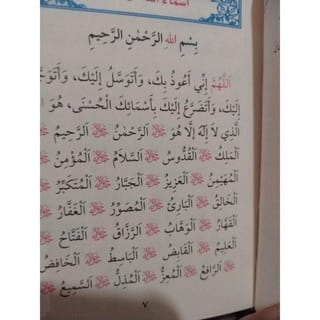 أسماء
بِسْمِ اللهِ الرَّحْمٰنِ الرَّحِيمِ
اَللّٰهُمَّ إِنِّي أَعُوذُ بِكَ، وَأَتَوَسَّلُ إِلَيْكَ، وَأَتَوَجَّ
إِلَيْكَ، وَأَتَضَرَّعُ إِلَيْكَ بِأَسْمَائِكَ الْحُسْنَى، هُوَ ا
الَّذِي لَا إِلٰهَ إِلَّا هُوَ ﷻ اَلرَّحْمٰنُ ﷻ اَلرَّحِيمُ ﷻ
اَلْمَلِكُ ﷻ اَلْقُدُّوسُ ﷻ اَلسَّلَامُ ﷻ اَلْمُؤْمِنُ ﷻ
اَلْمُهَيْمِنُ ﷻ اَلْعَزِيزُ ﷻ اَلْجَبَّارُ ﷻ اَلْمُتَكَبِّرُ ﷻ
اَلْخَالِقُ ﷻ اَلْبَارِئُ ﷻ اَلْمُصَوِّرُ ﷻ اَلْغَفَّارُ ﷻ
اَلْقَهَّارُ ﷻ اَلْوَهَّابُ ﷻ اَلرَّزَّاقُ ﷻ اَلْفَتَّاحُ ﷻ
اَلْعَلِيمُ ﷻ اَلْقَابِضُ ﷻ اَلْبَاسِطُ ﷻ اَلْخَافِضُ
ﷻ اَلرَّافِعُ ﷻ اَلْمُعِزُّ ﷻ اَلْمُذِلُّ ﷻ اَلسَّمِيعُ ﷻ
٧